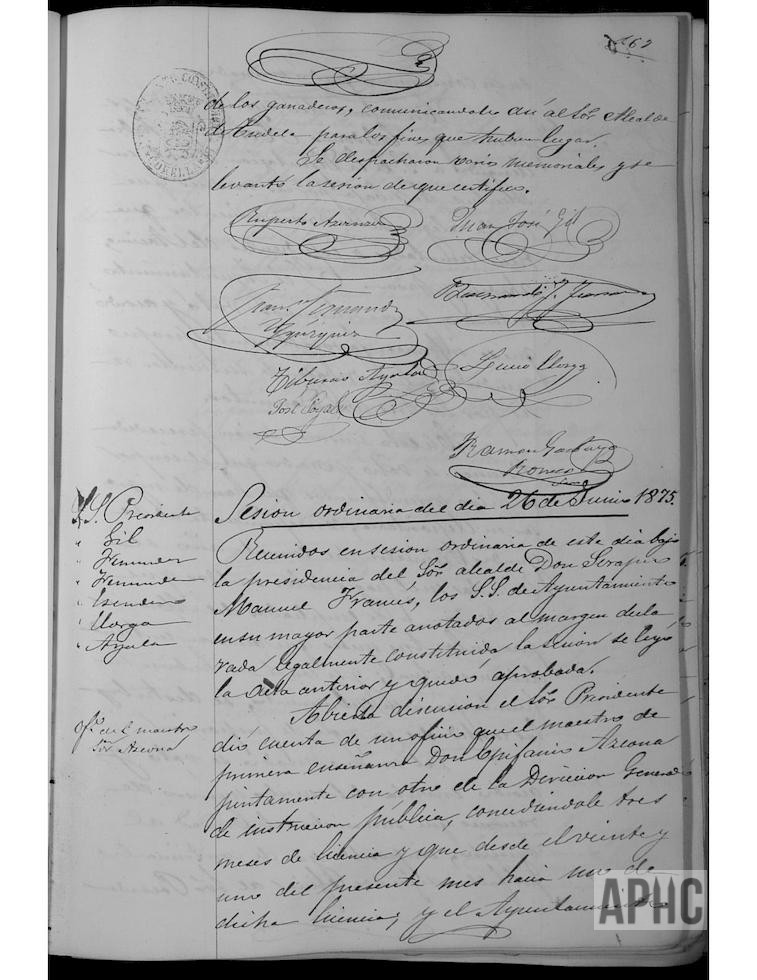 162
de los ganaderos, comunicandoles asi al Sor. Alcalde
de Tudela para los fines que hubiere lugar.
Se despacharon varios memoriales y se
levantó la sesion de que certifico.
Ruperto Aznar
Juan José Gil
Fernando
Yzurquiz
Tiburcio Ayala
Lucio Llorga
José
Ramon Gartayo
Romeo
Srio
S.S. Presidente
" Gil
" Fernandez
" Fernandez
" Llorga
" Ayala
Sesion ordinaria del dia 26 de Junio 1875.
Reunidos en sesion ordinaria de este dia bajo
la presidencia del Sor. alcalde Don Serapio
Manuel Francés, los S.S. de Ayuntamiento
en su mayor parte anotados al margen decla
rada legalmente constituida la sesion se leyó
la Acta anterior y quedó aprobada.
ofo. del maestro
Sor. Azcona
Abierta discusion el Sor. Presidente
dió cuenta de un oficio que el maestro de
primera enseñanza Don Epifanio Azcona
juntamente con otro de la Direccion General
de instruccion pública, concediendole tres
meses de licencia y que desde el veinte y
uno del presente mes hacia uso de
dicha licencia, y el Ayuntamiento
APHC